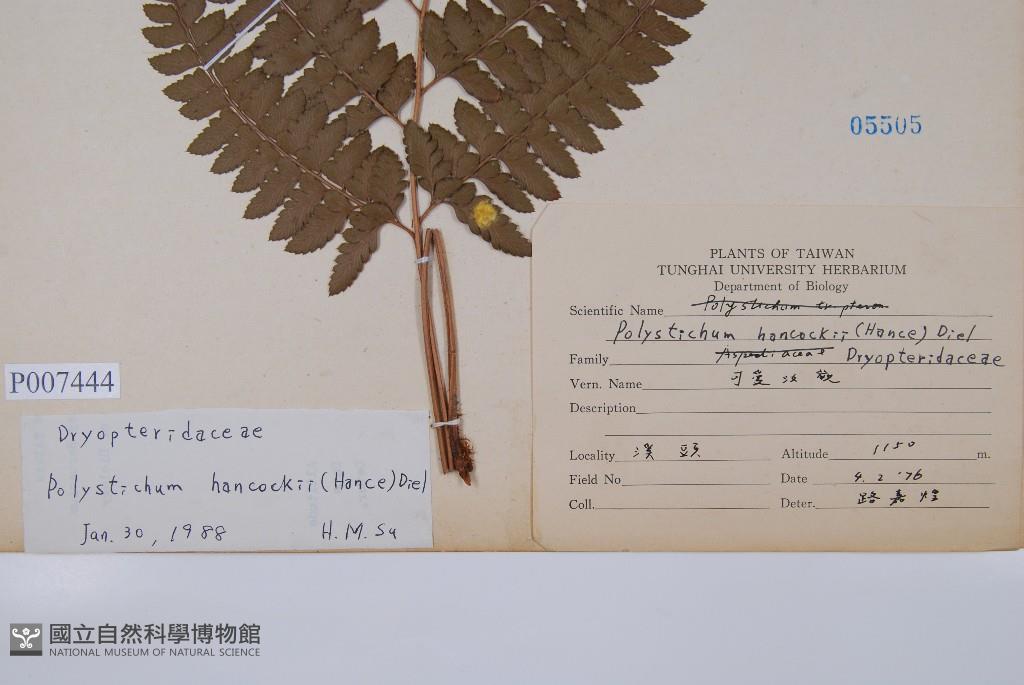 05505
PLANTS OF TAIWAN
TUNGHAI UNIVERSITY HERBARIUM
Department of Biology
Scientific Name Polystichum tripteron
Polystichum hancockii (Hance) Diel
Family Aspediaceae Dryopteridaceae
Vern. Name
Description
Locality 溪頭 Altitude 1150 m.
Field No Date 4. 2 '76
Coll. Deter. 路嘉煌
P007444
Dryopteridaceae
Polystichum hancockii (Hance) Diel
Jan. 30, 1988 H. M. Su
國立自然科學博物館
NATIONAL MUSEUM OF NATURAL SCIENCE